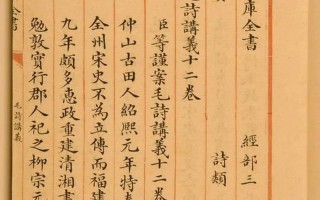 庫全書　經部三
詩類
毛詩講義十二卷
臣等謹案毛詩講義十二卷
仲山古田人紹熙元年特
全州宋史不為立傳而福建
九年頗多惠政重建清湘書
勉敦實行郡人祀之柳宗元
全書
毛詩講義